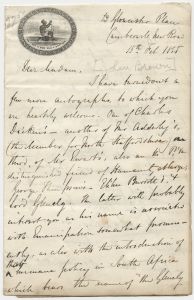 Gloucester Place
Camberwell New Road
15th Feb 1855
Dear Madam,
[John Brown]
I have turned out a
few more autographs, to which you
are heartily welcome. One of Charles
Dickens - another of Mr Adderley
(the Member for North Staffordshire,) a
third, of Mr Ewart's, also an M.P. a
distinguished friend of Humanity -
George Thompson - Elihu Burritt &
Lord Glenelg. The latter will probably
interest you as his name is associated
with Emancipation somewhat promin-
ently, as also with the introduction of
a humane policy in South Africa
which bears the name of "the Glenelg